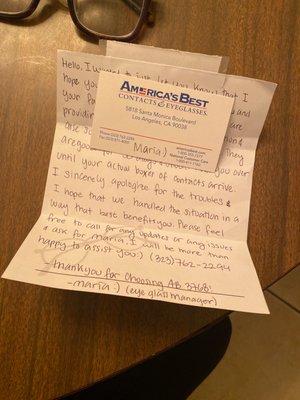 Hello, I wanted to just let you know that I
hope you
and
your
are
providing
case
They
are good for
you over
until your actual boxes of contacts arrive.
I sincerely apologize for the troubles &
I hope that we handled the situation in a
way that bests benefit you. Please feel
free to call for any updates or any issues
& ask for maria. I will be more than
happy to assist you :) (323)762-2294
thankyou for choosing AB 3768!
-maria :) (eye glass manager)
AMERICA'S BEST
CONTACTS & EYEGLASSES.
5818 Santa Monica Boulevard
Los Angeles, CA 90038
Maria :)
National Customer Care